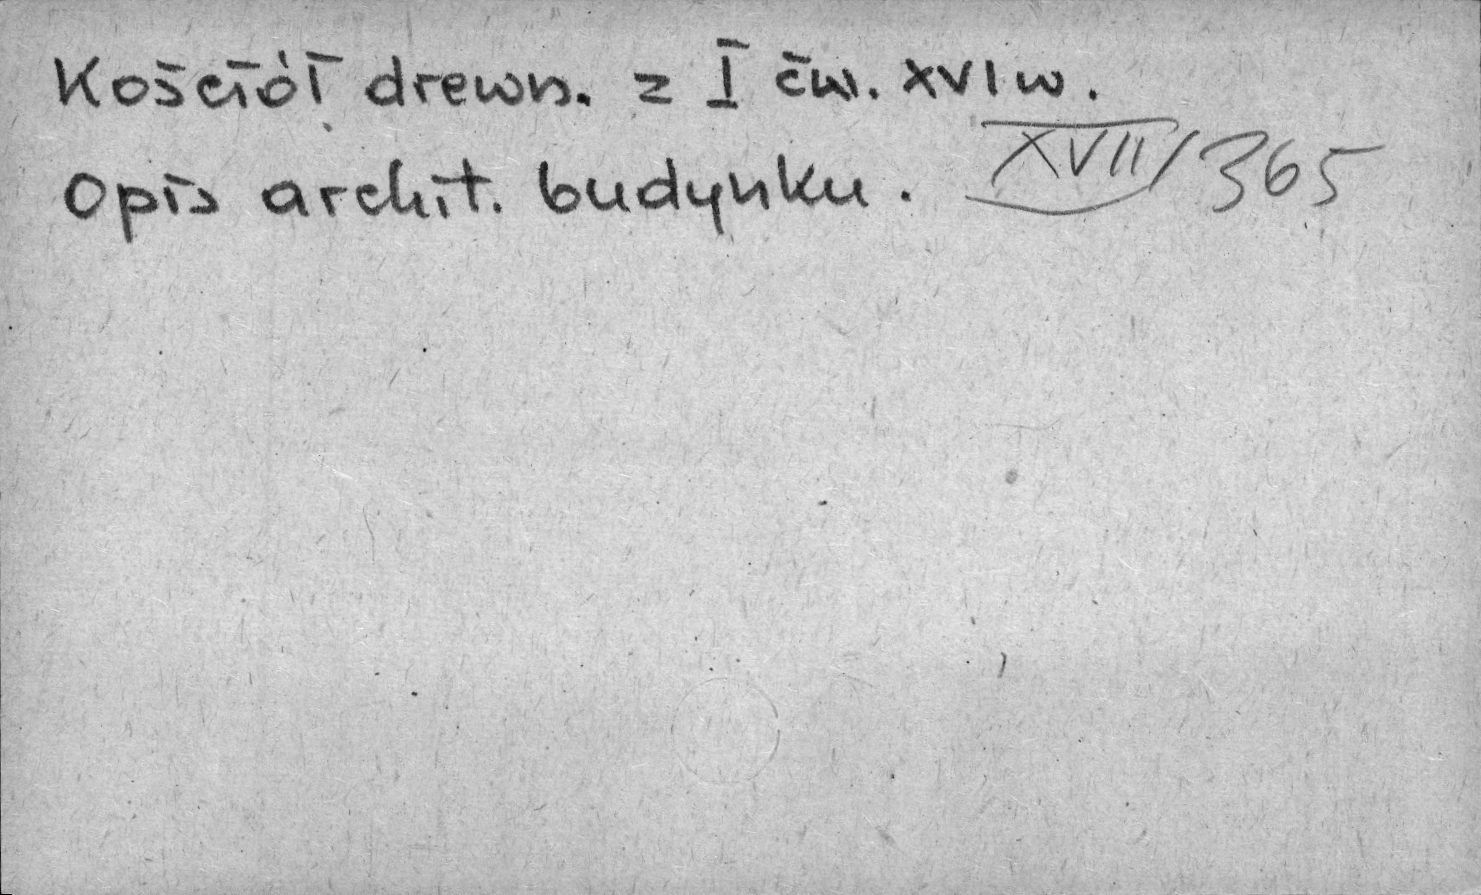 Kościół drewn. z I ćw. XVI w.
Opis archit. budynku. XVII/365